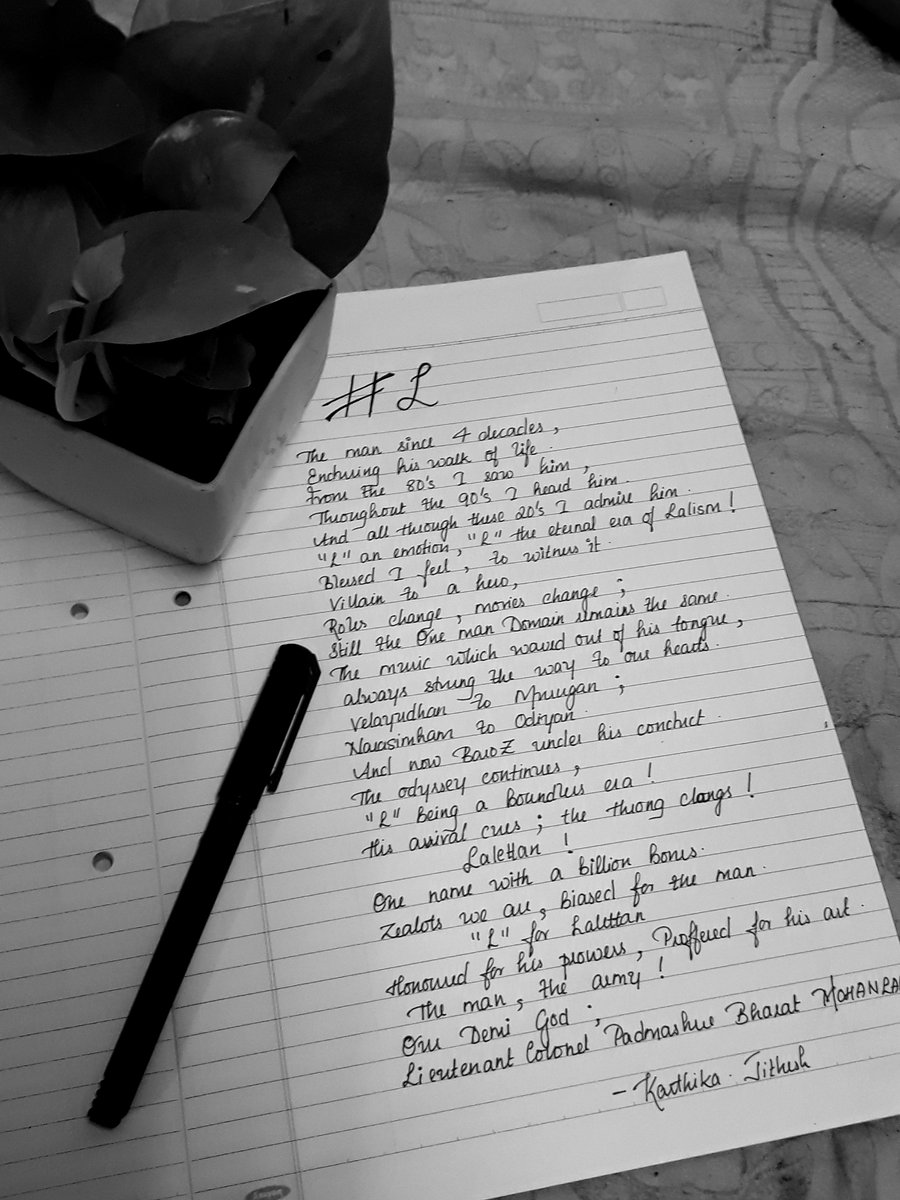 #L
The man since 4 decades,
Enduring his walk of life.
From the 80's I saw him,
Throughout the 90's I heard him.
And all through these 20's I admire him.
"L" an emotion, "L" the eternal era of Lalism!
Blessed I feel, to witness it.
Villain to a hero,
Roles change, movies change;
Still the One man Domain remains the same.
The music which waved out of his tongue,
always strung the way to our hearts.
Velayudhan to Mruugan;
Narasimham to Odiyan.
And now BaroZ under his conduct.
The odyssey continues,
"L" Being a Boundless era!
His arrival cues; the throng clangs!
Lalettan!
One name with a billion Bonus.
Zealots we are, Biased for the man.
"L" for Lalettan
Honoured for his prowess, Proffered for his art.
The man, the army!
Our Demi God;
Lieutenant Colonel Padmashree Bharat MOHANLA
- Karthika. Jithesh